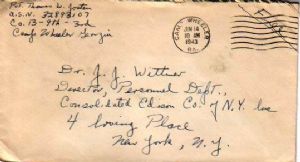 Pvt. Thomas W.
A.S.N. 32893107
Co. B-9th-3rd
Camp Wheeler Georgia
CAMP WHEELER
JUN 14
10 AM
1943
GA.
Free
Dr. J. J. Wittmer
Director, Personnel Dept.,
Consolidated Edison Co. of N.Y. Inc
4 Irving Place
New York, N.Y.